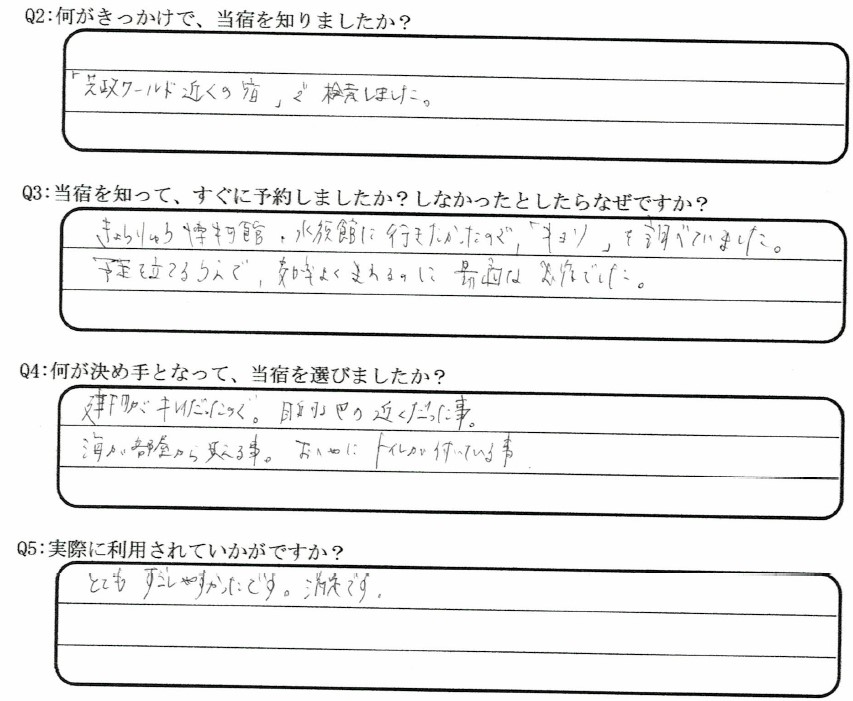 Q2:何がきっかけで、当宿を知りましたか？
「芝政ワールド近くの宿」で検索しました。
Q3:当宿を知って、すぐに予約しましたか？しなかったとしたらなぜですか？
きょうりゅう博物館、水族館に行きたかったので、「キョリ」を調べていました。
予定を立てるうえで、効率よくまわるのに最適な
でした。
Q4:何が決め手となって、当宿を選びましたか？
建物がキレイだったので。 の近くだった事。
海が部屋から見える事。おへやにトイレが付いている事
Q5:実際に利用されていかがですか？
とてもすごしやすかったです。満足です。